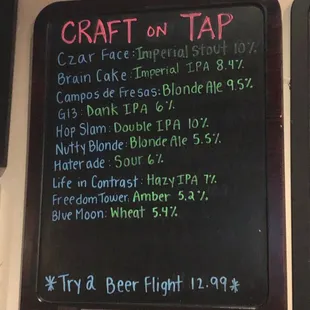 CRAFT ON TAP
Czar Face: Imperial Stout 10%
Brain Cake: Imperial IPA 8.4%
Campos de Fresas: Blonde Ale 9.5%
G13: Dank IPA 6%
Hop Slam: Double IPA 10%
Nutty Blonde: Blonde Ale 5.5%
Haterade: Sour 6%
Life in Contrast: Hazy IPA 7%
Freedom Tower: Amber 5.2%
Blue Moon: Wheat 5.4%
*Try a Beer Flight 12.99*